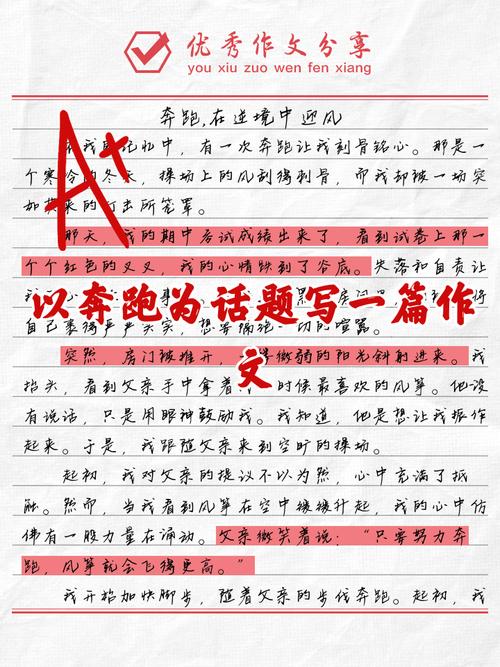 优秀作文分享
you xiu zuo wen fen xiang
奔跑,在逆境中迎风
A+
忆中,有一次奔跑让我刻骨铭心。那是一
个寒冷的冬天,操场上的风刮得刺骨,而我却被一场突
如其来的打击所笼罩。
那天,我的期中考试成绩出来了,看到试卷上那一
个个红色的叉叉,我的心情跌到了谷底。失落和自责让
以奔跑为话题写一篇作
文
自己裹得严严实实,想要隔绝一切的喧嚣。
突然,房门被推开,微弱的阳光斜射进来。我
抬头,看到父亲手中拿着我时候最喜欢的风筝。他没
有说话,只是用眼神鼓励我。我知道,他是想让我振作
起来。于是,我跟随父亲来到空旷的操场。
起初,我对父亲的提议不以为然,心中充满了抵
触。然而,当我看到风筝在空中缓缓升起,我的心中仿
佛有一股力量在涌动。父亲微笑着说:“只要努力奔
跑,风筝就会飞得更高。”
我开始加快脚步,随着父亲的步伐奔跑。起初,我